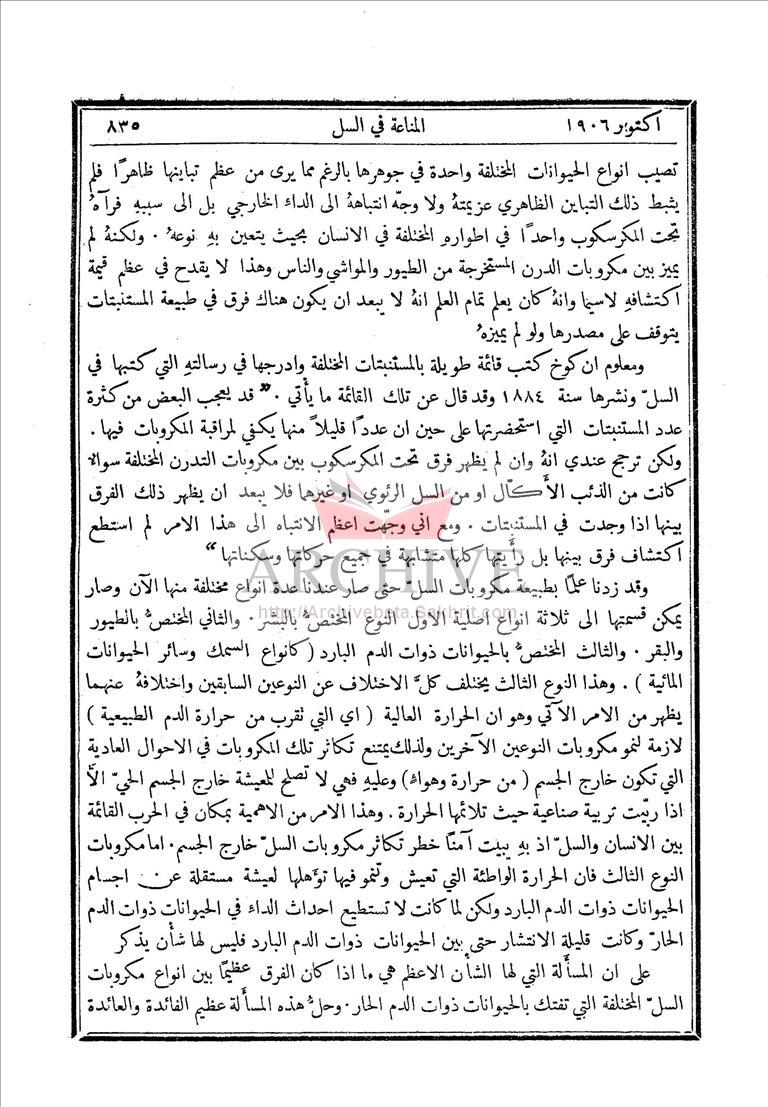 اكتوبر ١٩٠٦ المناعة في السل ٨٣٥
تصيب انواع الحيوانات المختلفة واحدة في جوهرها بالرغم مما يرى من عظم تباينها ظاهرًا فلم
يثبط ذلك التباين الظاهري عزيمتهُ ولا وجهَّ انتباههُ الى الداء الخارجي بل الى سببهِ فرآهُ
تحت المكرسكوب واحدًا في اطوارهِ المختلفة في الانسان بحيث يتعين بهِ نوعهُ . ولكنهُ لم
يميز بين مكروبات الدرن المستخرجة من الطيور والمواشي والناس وهذا لا يقدح في عظم قيمة
اكتشافهِ لاسيما وانهُ كان يعلم تمام العلم انهُ لا يبعد ان يكون هناك فرق في طبيعة المستنبتات
يتوقف على مصدرها ولو لم يميزهُ
ومعلوم ان كوخ كتب قائمة طويلة بالمستنبتات المختلفة وادرجها في رسالتهِ التي كتبها في
السلّ ونشرها سنة ١٨٨٤ وقد قال عن تلك القائمة ما يأتي . " قد يعجب البعض من كثرة
عدد المستنبتات التي استحضرتها على حين ان عددًا قليلاً منها يكفي لمراقبة المكروبات فيها .
ولكن ترجح عندي انهُ وان لم يظهر فرق تحت المكرسكوب بين مكروبات التدرن المختلفة سوالا
كانت من الذئب الأكّال او من السل الرئوي او غيرها فلا يبعد ان يظهر ذلك الفرق
بينها اذا وجدت في المستنبتات . ومع اني وجهّت اعظم الانتباه الى هذا الامر لم استطع
اكتشاف فرق بينها بل رأيتها كلها متشابهة في جميع حركاتها وسكناتها "
ARCHIVE
http://Archivebeta.Sakhrit.com
وقد زدنا علمًا بطبيعة مكروبات السلّ حتى صار عندنا عدة انواع مختلفة منها الآن وصار
يمكن قسمتها الى ثلاثة انواع اصلية الاول النوع المختصّ بالبشر . والثاني المختصّ بالطيور
والبقر . والثالث المختصّ بالحيوانات ذوات الدم البارد ( كانواع السمك وسائر الحيوانات
المائية ) . وهذا النوع الثالث يختلف كلَّ الاختلاف عن النوعين السابقين واختلافهُ عنهما
يظهر من الامر الآتي وهو ان الحرارة العالية ( اي التي تقرب من حرارة الدم الطبيعية )
لازمة لنمو مكروبات النوعين الآخرين ولذلك يمتنع تكاثر تلك المكروبات في الاحوال العادية
التي تكون خارج الجسم ( من حرارة وهواءٍ ) وعليهِ فهي لا تصلح للمعيشة خارج الجسم الحيّ الاَّ
اذا ربّيت تربية صناعية حيث تلائمها الحرارة . وهذا الامر من الاهمية بمكان في الحرب القائمة
بين الانسان والسلّ اذ بهِ يبيت آمنًا خطر تكاثر مكروبات السلّ خارج الجسم . اما مكروبات
النوع الثالث فان الحرارة الواطئة التي تعيش وتنمو فيها تؤهلها لعيشة مستقلة عن اجسام
الحيوانات ذوات الدم البارد ولكن لما كانت لا تستطيع احداث الداء في الحيوانات ذوات الدم
الحارّ وكانت قليلة الانتشار حتى بين الحيوانات ذوات الدم البارد فليس لها شأن يذكر
على ان المسألة التي لها الشأن الاعظم هي ما اذا كان الفرق عظيمًا بين انواع مكروبات
السلّ المختلفة التي تفتك بالحيوانات ذوات الدم الحار . وحلُّ هذه المسألة عظيم الفائدة والعائدة